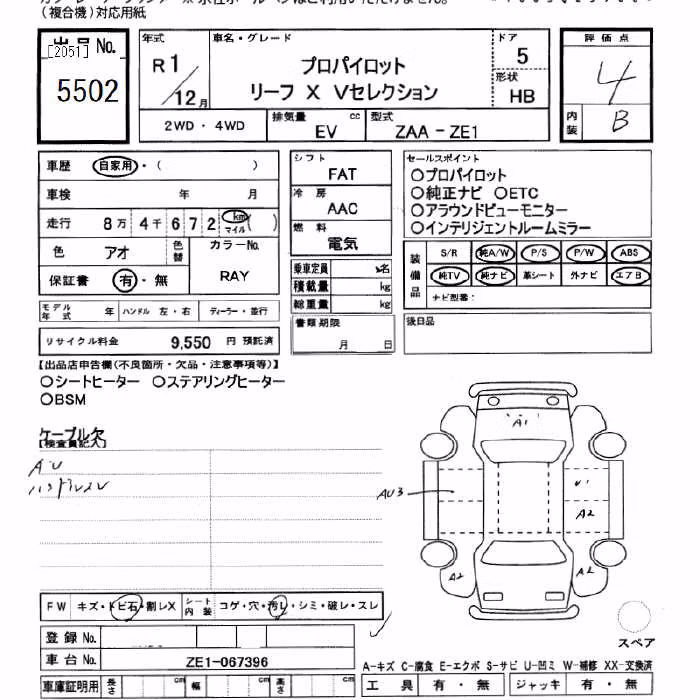 （複合機）対応用紙
出品 No.
[2051]
5502
年式
R1／12月
車名・グレード
プロパイロット
リーフ X Vセレクション
ドア
5
形状
HB
評価点
4
内装
B
2WD・4WD
排気量
cc
EV
型式
ZAA - ZE1
車歴
自家用・（ ）
車検
年 月
走行
8万 4千 6 7 2
km
マイル
( )
色
アオ
色替
カラーNo.
RAY
保証書
有・無
モデル年式
年
ハンドル 左・右
ディーラー・並行
リサイクル料金
9,550 円 預託済
シフト
FAT
冷房
AAC
燃料
電気
乗車定員
名
積載量
kg
総重量
kg
書類期限
月 日
セールスポイント
○プロパイロット
○純正ナビ ○ETC
○アラウンドビューモニター
○インテリジェントルームミラー
装備品
S/R 純A/W P/S P/W ABS
純TV 純ナビ 革シート 外ナビ エアB
ナビ型番：
後日品
【出品店申告欄(不良箇所・欠品・注意事項等)】
○シートヒーター ○ステアリングヒーター
○BSM
ケーブル欠
【検査員記入】
AU
ハンドルスレ
A1
AU3
U1
A2
A2
A2
FW
キズ・トビ石・割レX
シート内装
コゲ・穴・汚レ・シミ・破レ・スレ
登録 No.
車台 No.
ZE1-067396
車庫証明用
長さ
cm
幅
cm
高さ
cm
スペア
A-キズ C-腐食 E-エクボ S-サビ U-凹ミ W-補修 XX-交換済
工具
有・無
ジャッキ
有・無